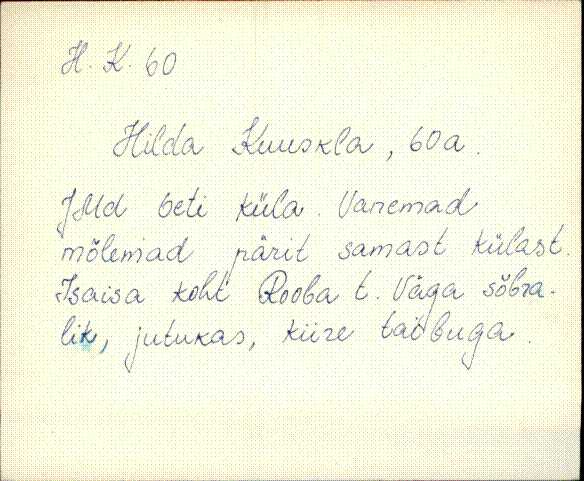 H. K. 60
Hilda Kuuskla, 60a.
JMd beti küla. Vanemad
mõlemad pärit samast külast.
Isaisa koht Rooba t. Väga sõbra-
lik, jutukas, kiire taibuga.